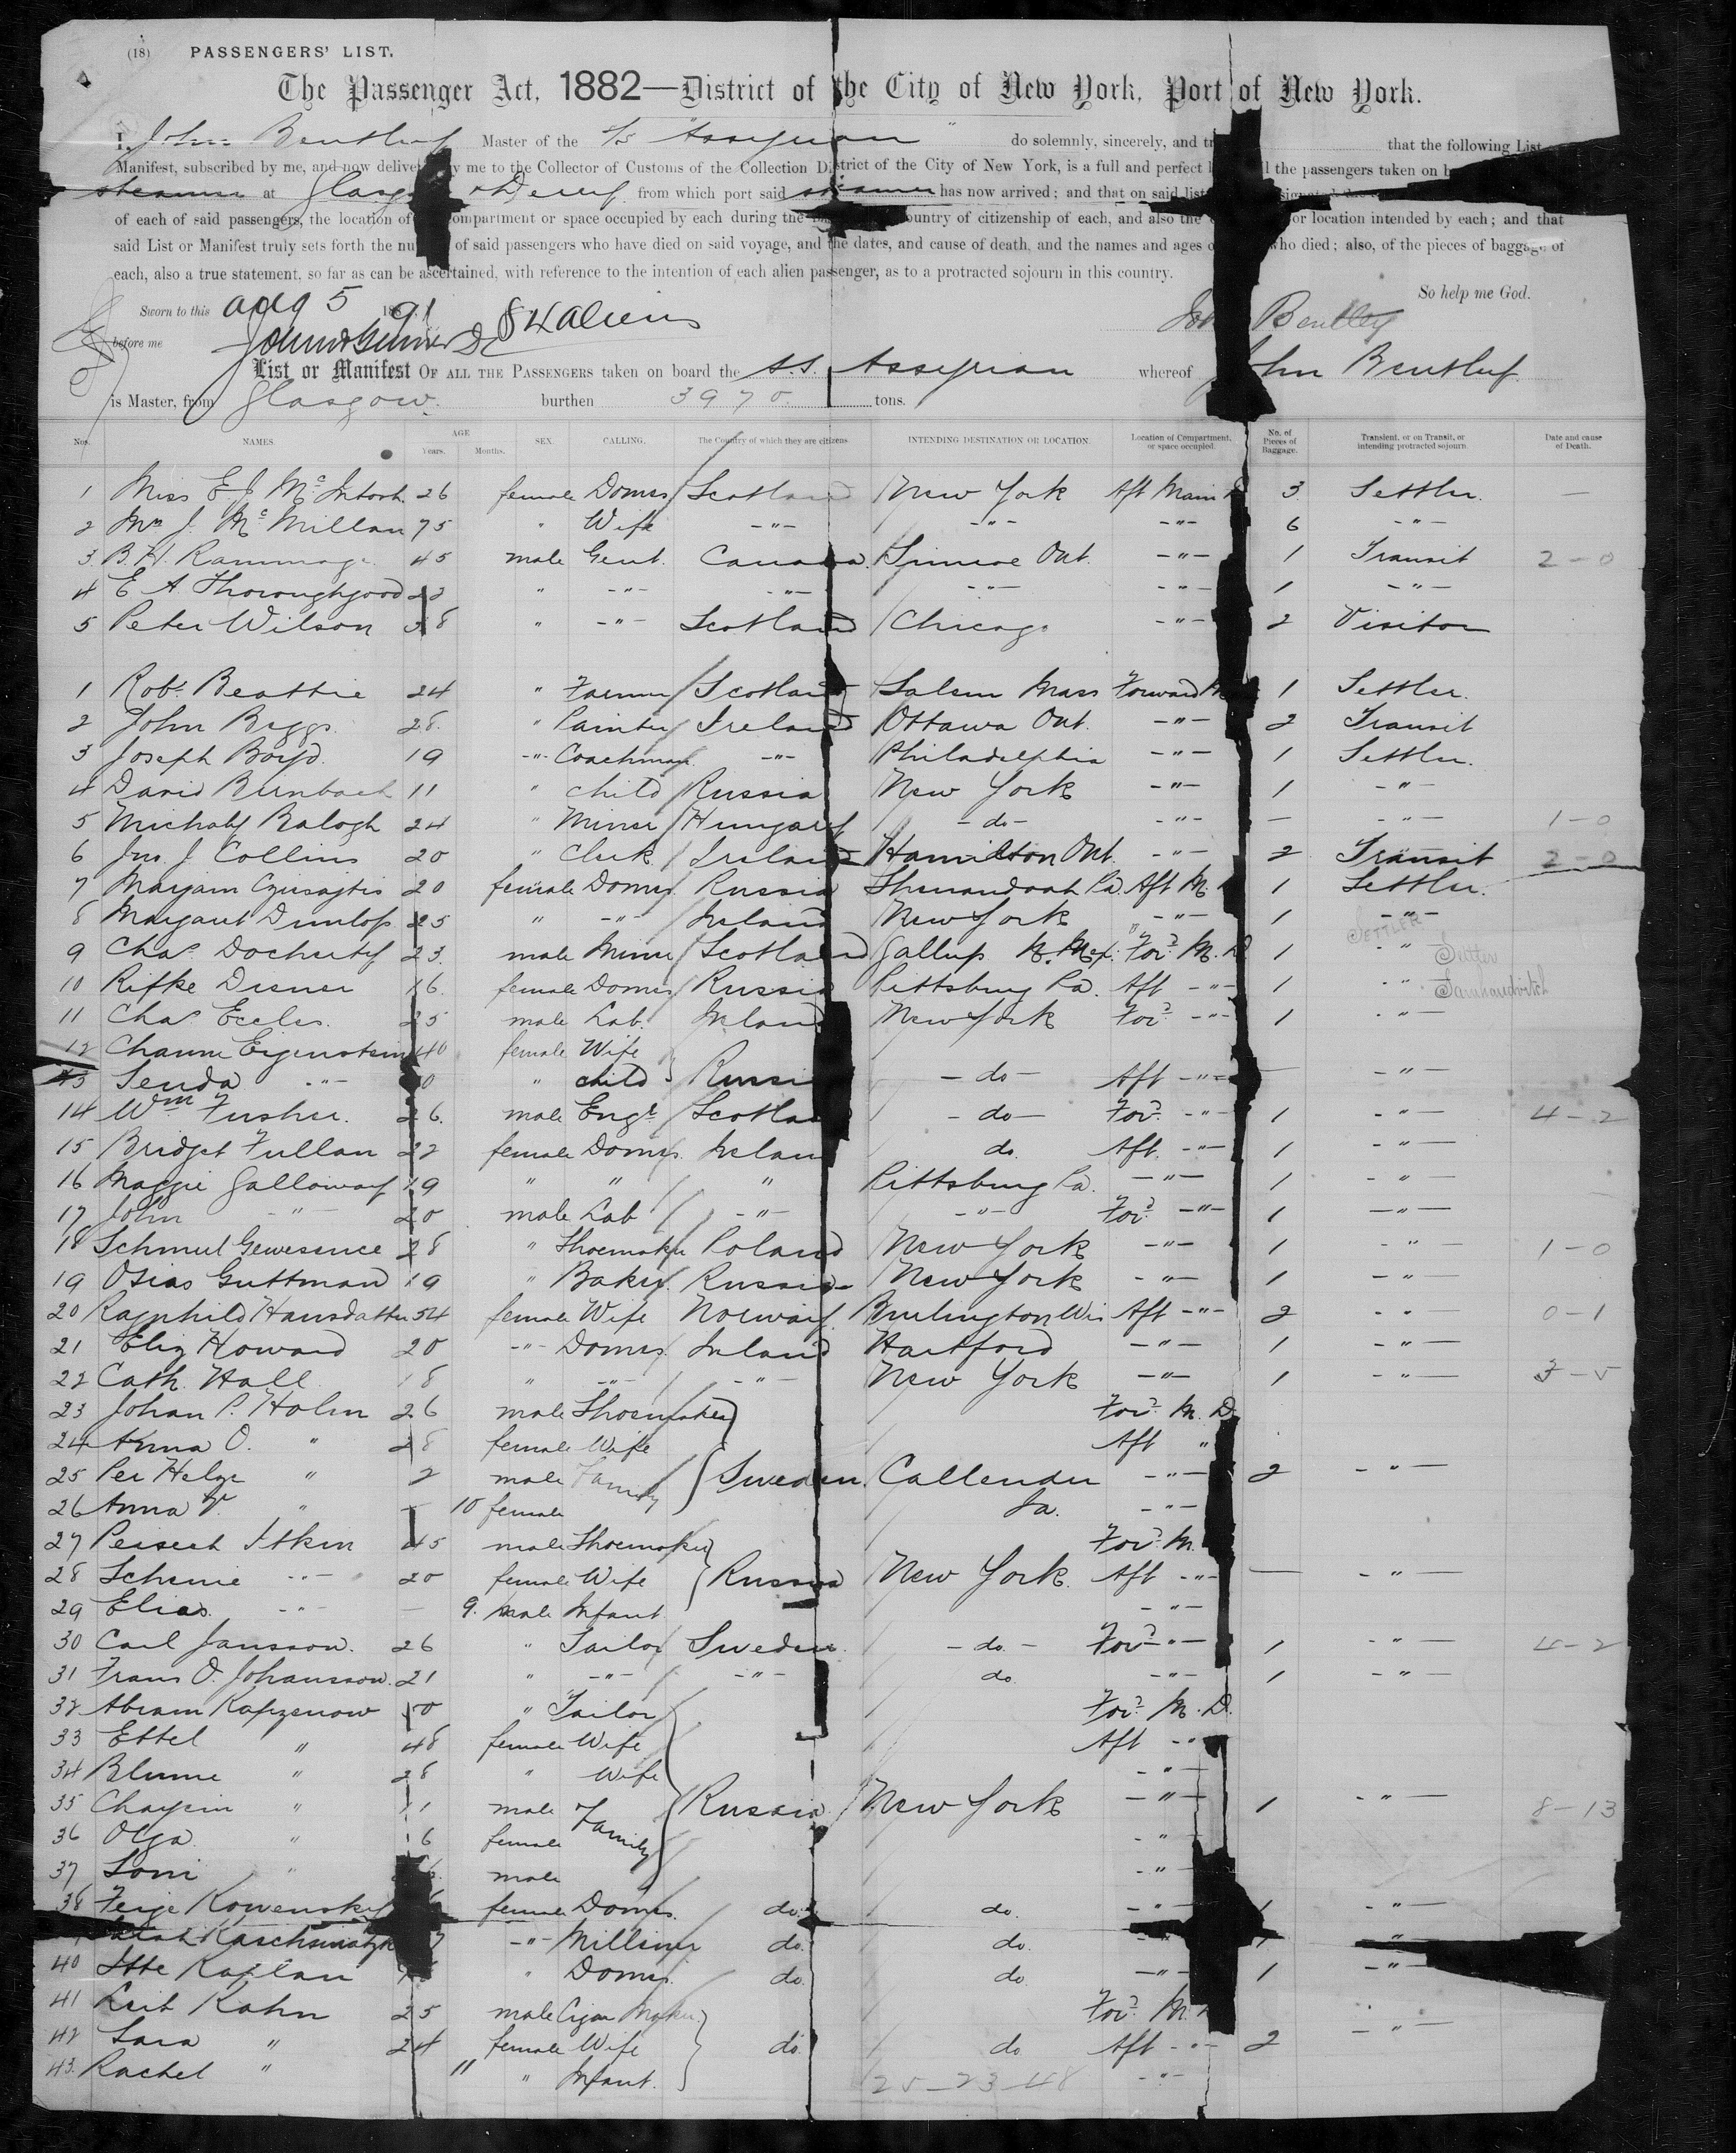 (18) PASSENGERS' LIST.
The Passenger Act, 1882—District of the City of New York, Port of New York.
I, John Bentley Master of the S/S "Assyrian" do solemnly, sincerely, and that the following List
Manifest, subscribed by me, and now delivered by me to the Collector of Customs of the Collection District of the City of New York, is a full and perfect the passengers taken on
steamer at Glasgow & Derry from which port said steamer has now arrived; and that on said list
of each of said passengers, the location of compartment or space occupied by each during the country of citizenship of each, and also the or location intended by each; and that
said List or Manifest truly sets forth the of said passengers who have died on said voyage, and the dates, and cause of death, and the names and ages who died; also, of the pieces of baggage of
each, also a true statement, so far as can be ascertained, with reference to the intention of each alien passenger, as to a protracted sojourn in this country.
So help me God.
Sworn to this Aug 5 1891 84 Aliens John Bentley
before me
List or Manifest OF ALL THE PASSENGERS taken on board the S.S. Assyrian whereof John Bentley
is Master, from Glasgow. burthen 3970 tons.
Nos. NAMES. AGE Years. Months. SEX. CALLING. The Country of which they are citizens. INTENDING DESTINATION OR LOCATION. Location of Compartment, or space occupied. No. of Pieces of Baggage. Transient, or on Transit, or intending protracted sojourn. Date and cause of Death.
1 Miss E J McIntosh 26 female Domes Scotland New York Aft Main 3 Settler. —
2 Mrs J. McMillan 75 " Wife -"- -"- -"- 6 -"-
3 B. H. Rammage 45 male Gent. Canada Simcoe Ont. -"- 1 Transit 2-0
4 E A Thoroughgood 22 " -"- -"- -"- -"- 1 -"-
5 Peter Wilson 38 " -"- Scotland Chicago -"- 2 Visitor
1 Robt Beattie 24 " Farmer Scotland Salem Mass Forward 1 Settler.
2 John Biggs 28. " Painter Ireland Ottawa Ont. -"- 2 Transit
3 Joseph Boyd. 19 -"- Coachman -"- Philadelphia -"- 1 Settler.
4 David Birnbach 11 " child Russia New York -"- 1 -"-
5 Michaly Balogh 24 " Miner Hungary -do- -"- — -"- 1-0
6 Jno. J. Collins 20 " Clerk Ireland Hamilton Ont. -"- 2 Transit 2-0
7 Maryam 20 female Domes Russia Shenandoah Pa. Aft M. 1 Settler.
8 Margaret Dunlop 25 " -"- Ireland New York -"- 1 -"-
SETTLER
9 Chas Docherty 23. male Miner Scotland Gallup N. Mex. Ford M. D 1 -"-
10 Rifke Disner 16. female Domes Russia Pittsburg Pa. Aft -"- 1 -"-
11 Chas Eccles. 25 male Lab. Ireland New York Ford -"- 1 -"-
12 Channe Eigenstein 40 female Wife
13 Senda -"- " child } Russia -do- Aft -"- — -"-
14 Wm Fusher. 26. male Engr Scotland -do- Ford -"- 1 -"- 4-2
15 Bridget Fullan 22 female Domes. Ireland do. Aft. -"- 1 -"-
16 Maggie Galloway 19 " " " Pittsburg Pa. -"- 1 -"-
17 John -"- 20 male Lab -"- -"- Ford -"- 1 -"-
18 Schmul Gewesence 28 " Shoemaker Poland New York -"- 1 -"- 1-0
19 Osias Guttman 19 " Baker Russia New York -"- 1 -"-
20 Ragnhild Hansdatter 54 female Wife Norway Burlington Wis Aft -"- 2 -"- 0-1
21 Eliz Howard 20 -"- Domes. Ireland Hartford -"- 1 -"-
22 Cath. Hall 18 " -"- -"- New York -"- 1 -"- 3-5
23 Johan P. Holm 26 male Shoemaker Ford M. D.
24 Anna O. " 28 female Wife Aft "
25 Per Helge " 2 male Family Sweden. Callender -"- 2 -"-
26 Anna V. " — 10 female Ia. -"-
27 Peisech Itkin 45 male Shoemaker Ford M.
28 Scheine -"- 20 female Wife } Russia New York. Aft -"- — -"-
29 Elias. -"- — 9. male Infant -"-
30 Carl Jansson. 26 " Tailor Sweden. -do- Ford -"- 1 -"- 4-2
31 Frans O. Johansson. 21 " -"- -"- do -"- 1 -"-
32 Abram Kapzenow 50 " Tailor Ford M. D.
33 Ettel " 48 female Wife Aft -"-
34 Blume " 28 " Wife -"-
35 " 11 male Family Russia New York -"- 1 -"- 8-13
36 Olga " 6 female -"-
37 " male -"-
38 Feige Kowensky female Domes. do. do. -"- 1 -"-
-"- Milliner do. do. 1 -"-
40 Itte Kaplan " Domes. do. do. -"- 1 -"-
41 Leib Kahn 25 male Cigar Maker Ford M.
42 Sara " 24 female Wife do. do Aft -"- 2 -"-
43. Rachel " 11 " Infant. -"-
25-23-48